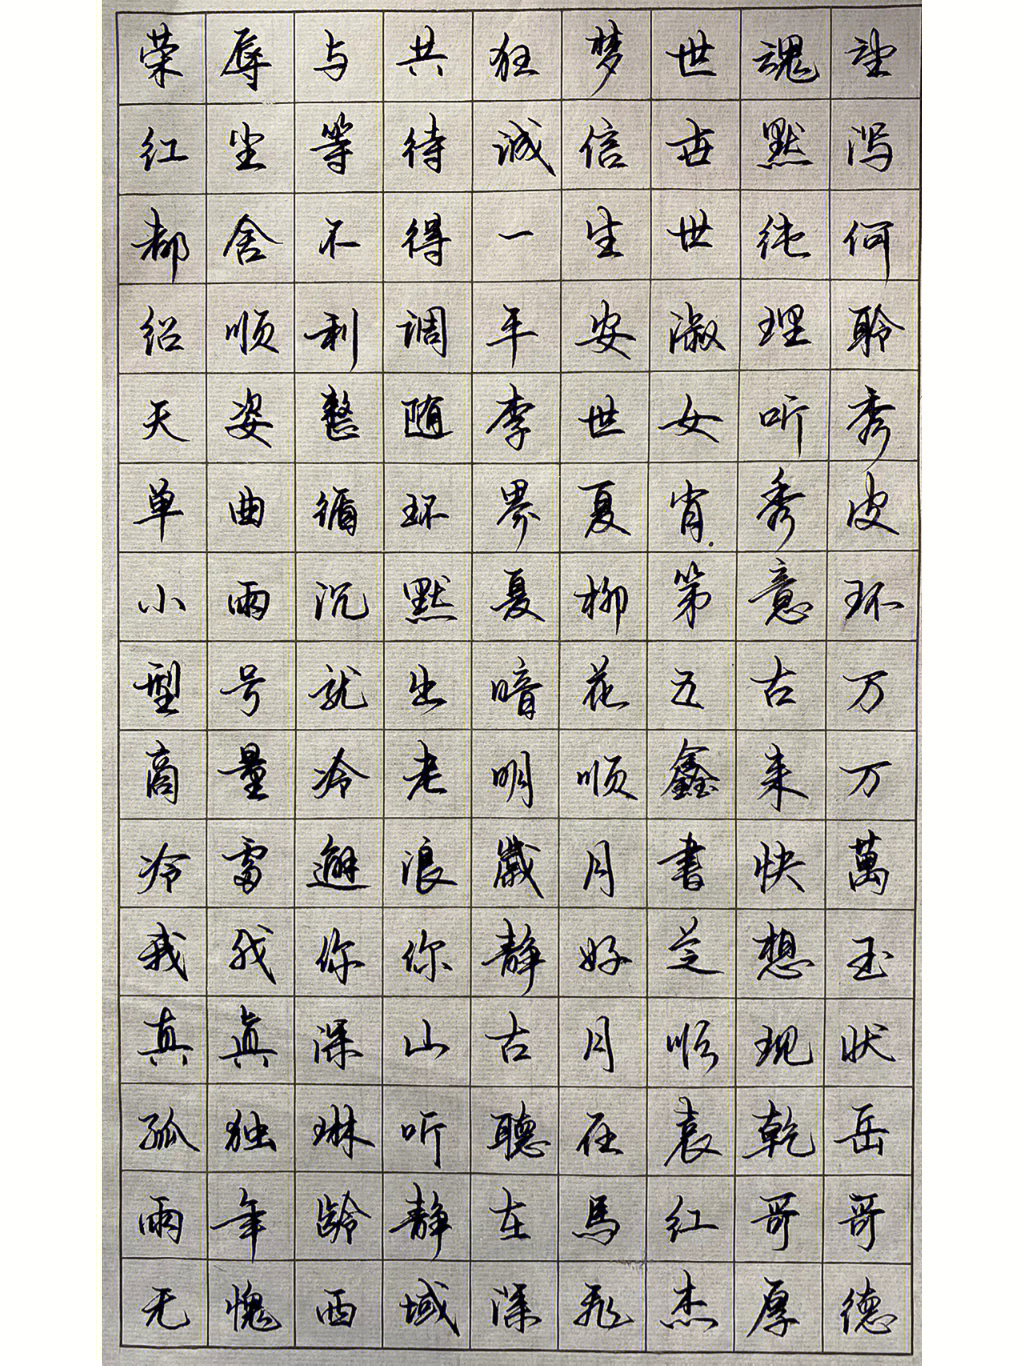 荣辱与共狂梦世魂尘
红尘等待诚信世默泻
都舍不得一生世纯何
绍顺利调平安淑理聆
天姿整随李世女听秀
单曲循环界夏肖秀皮
小雨沉默夏柳第意环
型号就出暗花五古万
商量冷老明顺鑫来万
冷雷避浪岁月书快萬
我我你你静好芝想玉
真真深山古月顺现状
孤独琳听聽在哀乾岳
雨年龄静在馬红哥哥
无愧西域深飛杰厚德